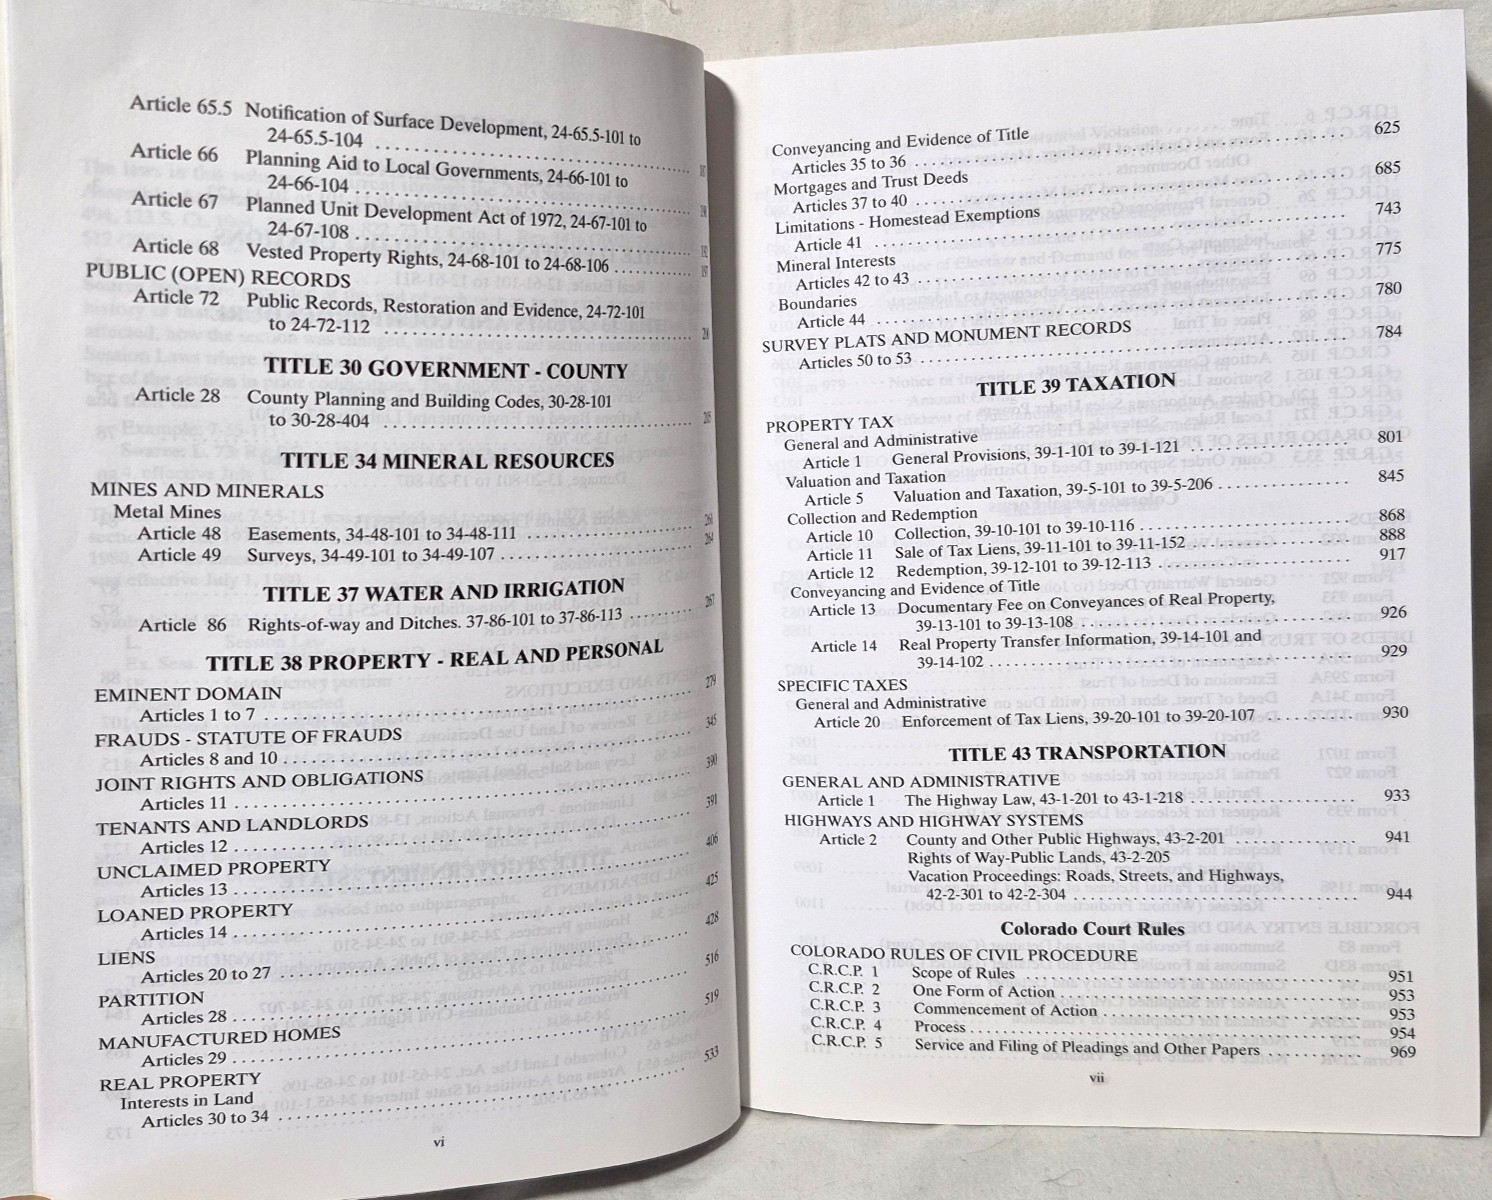 Article 65.5 Notification of Surface Development, 24-65.5-101 to
24-65.5-104 ........ 187
Article 66 Planning Aid to Local Governments, 24-66-101 to
24-66-104 ........
Article 67 Planned Unit Development Act of 1972, 24-67-101 to
24-67-108 ........ 192
Article 68 Vested Property Rights, 24-68-101 to 24-68-106 ........ 197
PUBLIC (OPEN) RECORDS
Article 72 Public Records, Restoration and Evidence, 24-72-101
to 24-72-112 ........
TITLE 30 GOVERNMENT - COUNTY
Article 28 County Planning and Building Codes, 30-28-101
to 30-28-404 ........ 205
TITLE 34 MINERAL RESOURCES
MINES AND MINERALS
Metal Mines
Article 48 Easements, 34-48-101 to 34-48-111 ........
Article 49 Surveys, 34-49-101 to 34-49-107 ........ 264
TITLE 37 WATER AND IRRIGATION
Article 86 Rights-of-way and Ditches. 37-86-101 to 37-86-113 ........ 267
TITLE 38 PROPERTY - REAL AND PERSONAL
EMINENT DOMAIN
Articles 1 to 7 ........ 279
FRAUDS - STATUTE OF FRAUDS
Articles 8 and 10 ........ 345
JOINT RIGHTS AND OBLIGATIONS
Articles 11 ........ 390
TENANTS AND LANDLORDS
Articles 12 ........ 391
UNCLAIMED PROPERTY
Articles 13 ........ 406
LOANED PROPERTY
Articles 14 ........ 425
LIENS
Articles 20 to 27 ........ 428
PARTITION
Articles 28 ........ 516
MANUFACTURED HOMES
Articles 29 ........ 519
REAL PROPERTY
Interests in Land
Articles 30 to 34 ........ 533
vi
Conveyancing and Evidence of Title
Articles 35 to 36 ........ 625
Mortgages and Trust Deeds
Articles 37 to 40 ........ 685
Limitations - Homestead Exemptions
Article 41 ........ 743
Mineral Interests
Articles 42 to 43 ........ 775
Boundaries
Article 44 ........ 780
SURVEY PLATS AND MONUMENT RECORDS
Articles 50 to 53 ........ 784
TITLE 39 TAXATION
PROPERTY TAX
General and Administrative
Article 1 General Provisions, 39-1-101 to 39-1-121 ........ 801
Valuation and Taxation
Article 5 Valuation and Taxation, 39-5-101 to 39-5-206 ........ 845
Collection and Redemption
Article 10 Collection, 39-10-101 to 39-10-116 ........ 868
Article 11 Sale of Tax Liens, 39-11-101 to 39-11-152 ........ 888
Article 12 Redemption, 39-12-101 to 39-12-113 ........ 917
Conveyancing and Evidence of Title
Article 13 Documentary Fee on Conveyances of Real Property,
39-13-101 to 39-13-108 ........ 926
Article 14 Real Property Transfer Information, 39-14-101 and
39-14-102 ........ 929
SPECIFIC TAXES
General and Administrative
Article 20 Enforcement of Tax Liens, 39-20-101 to 39-20-107 ........ 930
TITLE 43 TRANSPORTATION
GENERAL AND ADMINISTRATIVE
Article 1 The Highway Law, 43-1-201 to 43-1-218 ........ 933
HIGHWAYS AND HIGHWAY SYSTEMS
Article 2 County and Other Public Highways, 43-2-201 ........ 941
Rights of Way-Public Lands, 43-2-205
Vacation Proceedings: Roads, Streets, and Highways,
42-2-301 to 42-2-304 ........ 944
Colorado Court Rules
COLORADO RULES OF CIVIL PROCEDURE
C.R.C.P. 1 Scope of Rules ........ 951
C.R.C.P. 2 One Form of Action ........ 953
C.R.C.P. 3 Commencement of Action ........ 953
C.R.C.P. 4 Process ........ 954
C.R.C.P. 5 Service and Filing of Pleadings and Other Papers ........ 969
vii